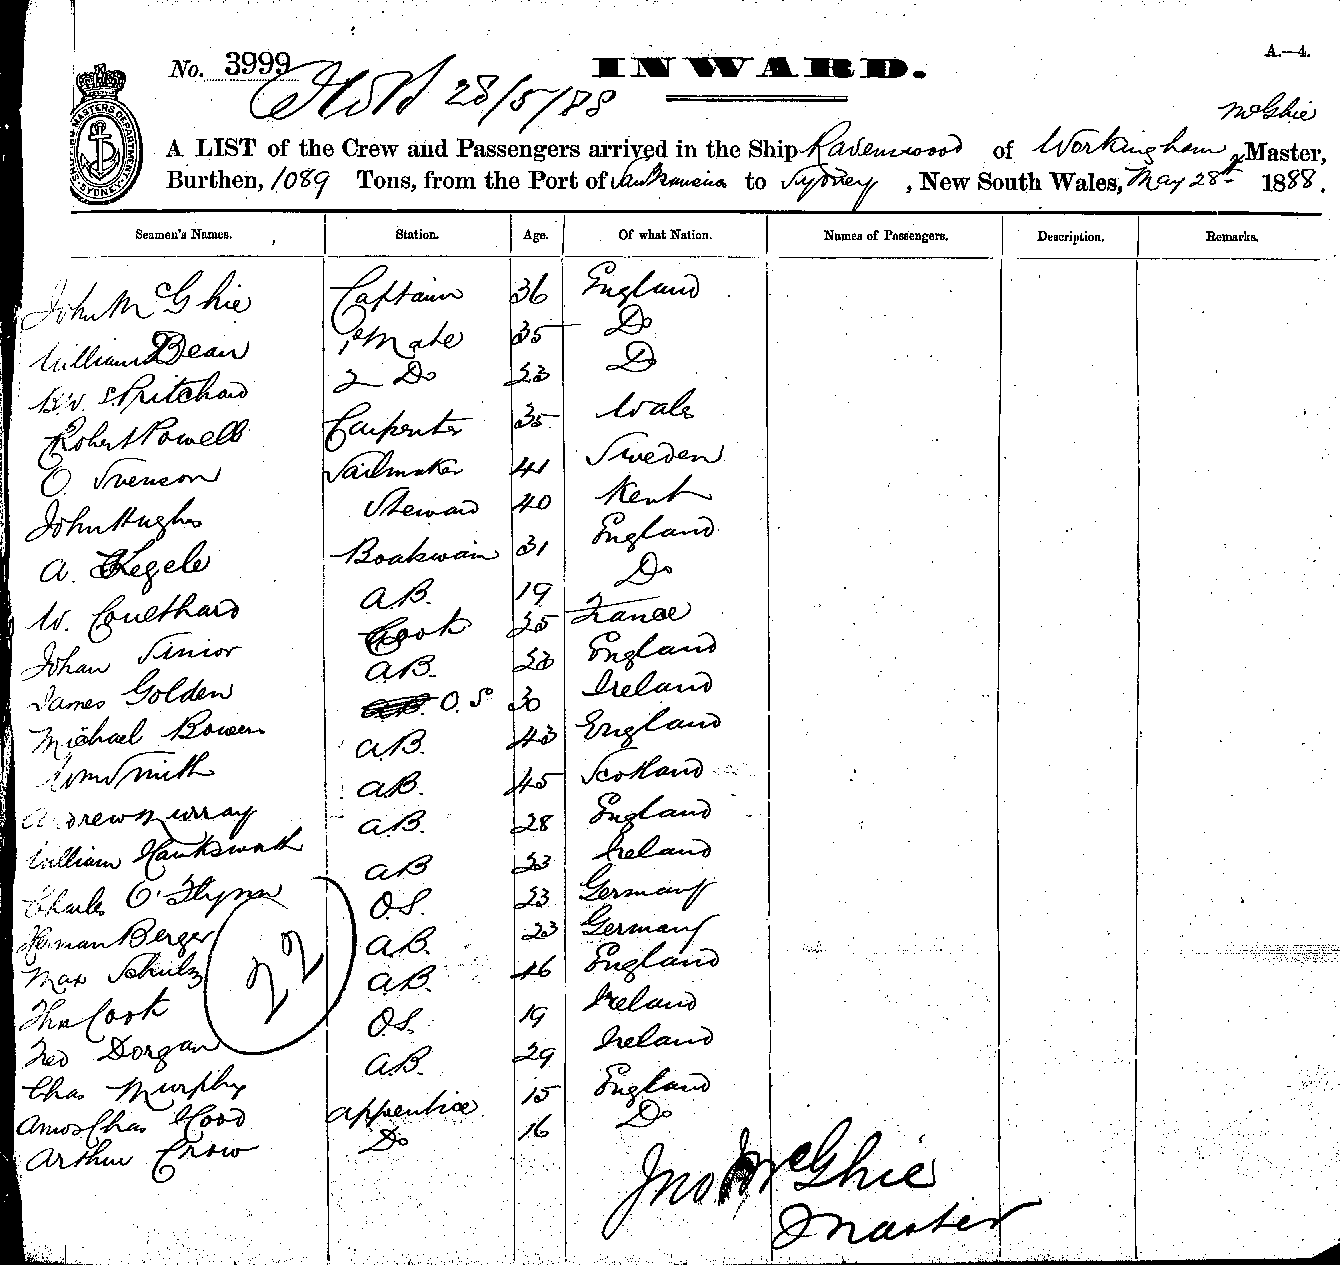 A.—4.
No. 3999 INWARD.
28/5/88
McGhie
A LIST of the Crew and Passengers arrived in the Ship Ravenswood of Workingham, Master,
Burthen, 1089 Tons, from the Port of San Francisco to Sydney, New South Wales, May 28th 1888.
Seamen's Names. Station. Age. Of what Nation. Names of Passengers. Description. Remarks.
John McGhie Captain 36 England
William Bean 1st Mate 35 Do
Pritchard 2 Do 23 Do
Robert Powell Carpenter 35 Wales
O. Svenson Sailmaker 41 Sweden
John Hughes Steward 40 Kent
A. Kegele Boatswain 31 England
W. Coulthard A.B. 19 Do
Johan Simior Cook 25 France
James Golden A.B. 23 England
Michael Bowen O.S. 30 Ireland
Wm Smith A.B. 43 England
Andrew Murray A.B. 45 Scotland
William Hawksworth A.B. 28 England
Charles O'Flynn A.B 23 Ireland
Herman Berger O.S. 23 Germany
Max Schulz A.B. 23 Germany
Thos Cook A.B. 46 England
Fred Dorgan O.S. 19 Ireland
Chas Murphy A.B. 29 Ireland
Amos Chas Hood Apprentice 15 England
Arthur Crow Do 16 Do
22
Jno McGhie
Master